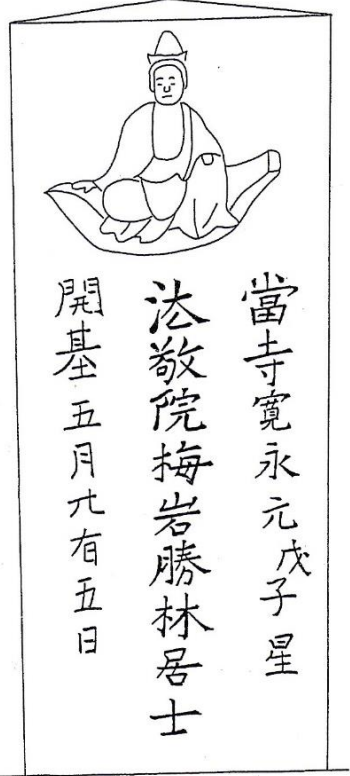 當寺寛永元戊子星
法敬院梅岩勝林居士
開基五月廿有五日